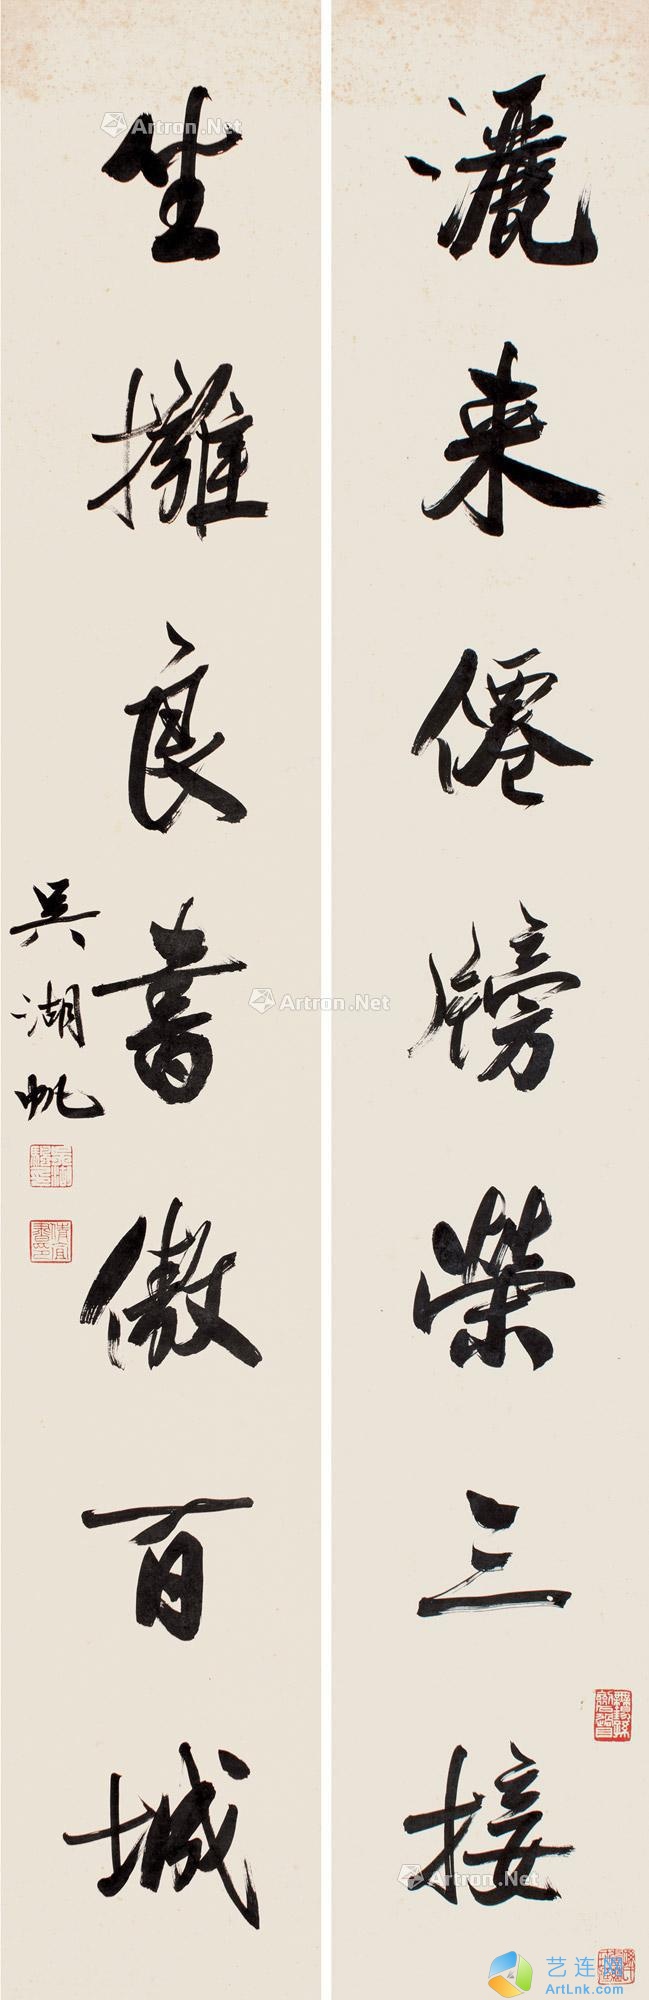 灑来僊牓榮三接
坐擁良書傲百城
吴湖帆
Artron.Net
Artron.Net
Artron.Net
艺连网
ArtLnk.com